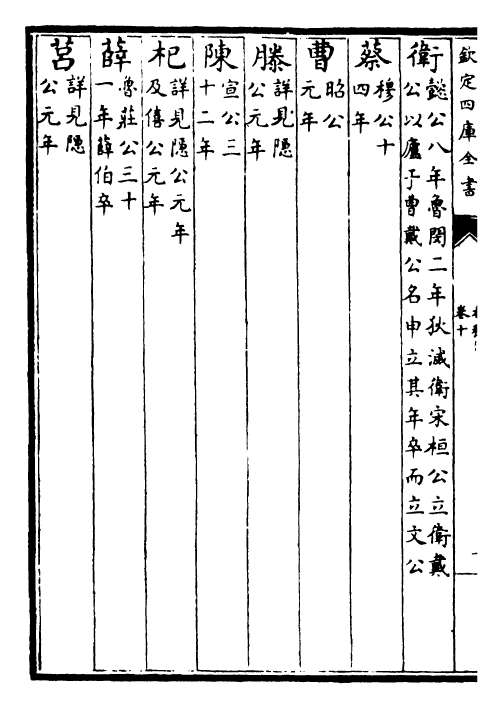 欽定四庫全書
卷十
衛懿公八年魯閔二年狄滅衛宋桓公立衛戴
公以廬于曹戴公名申立其年卒而立文公
蔡穆公十
四年
曹昭公
元年
滕詳見隱
公元年
陳宣公三
十二年
杞詳見隱公元年
及僖公元年
薛魯莊公三十
一年薛伯卒
莒詳見隱
公元年